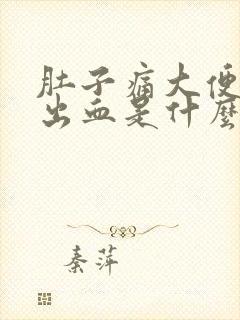 肚子痛大便
出血是什麼
秦萍